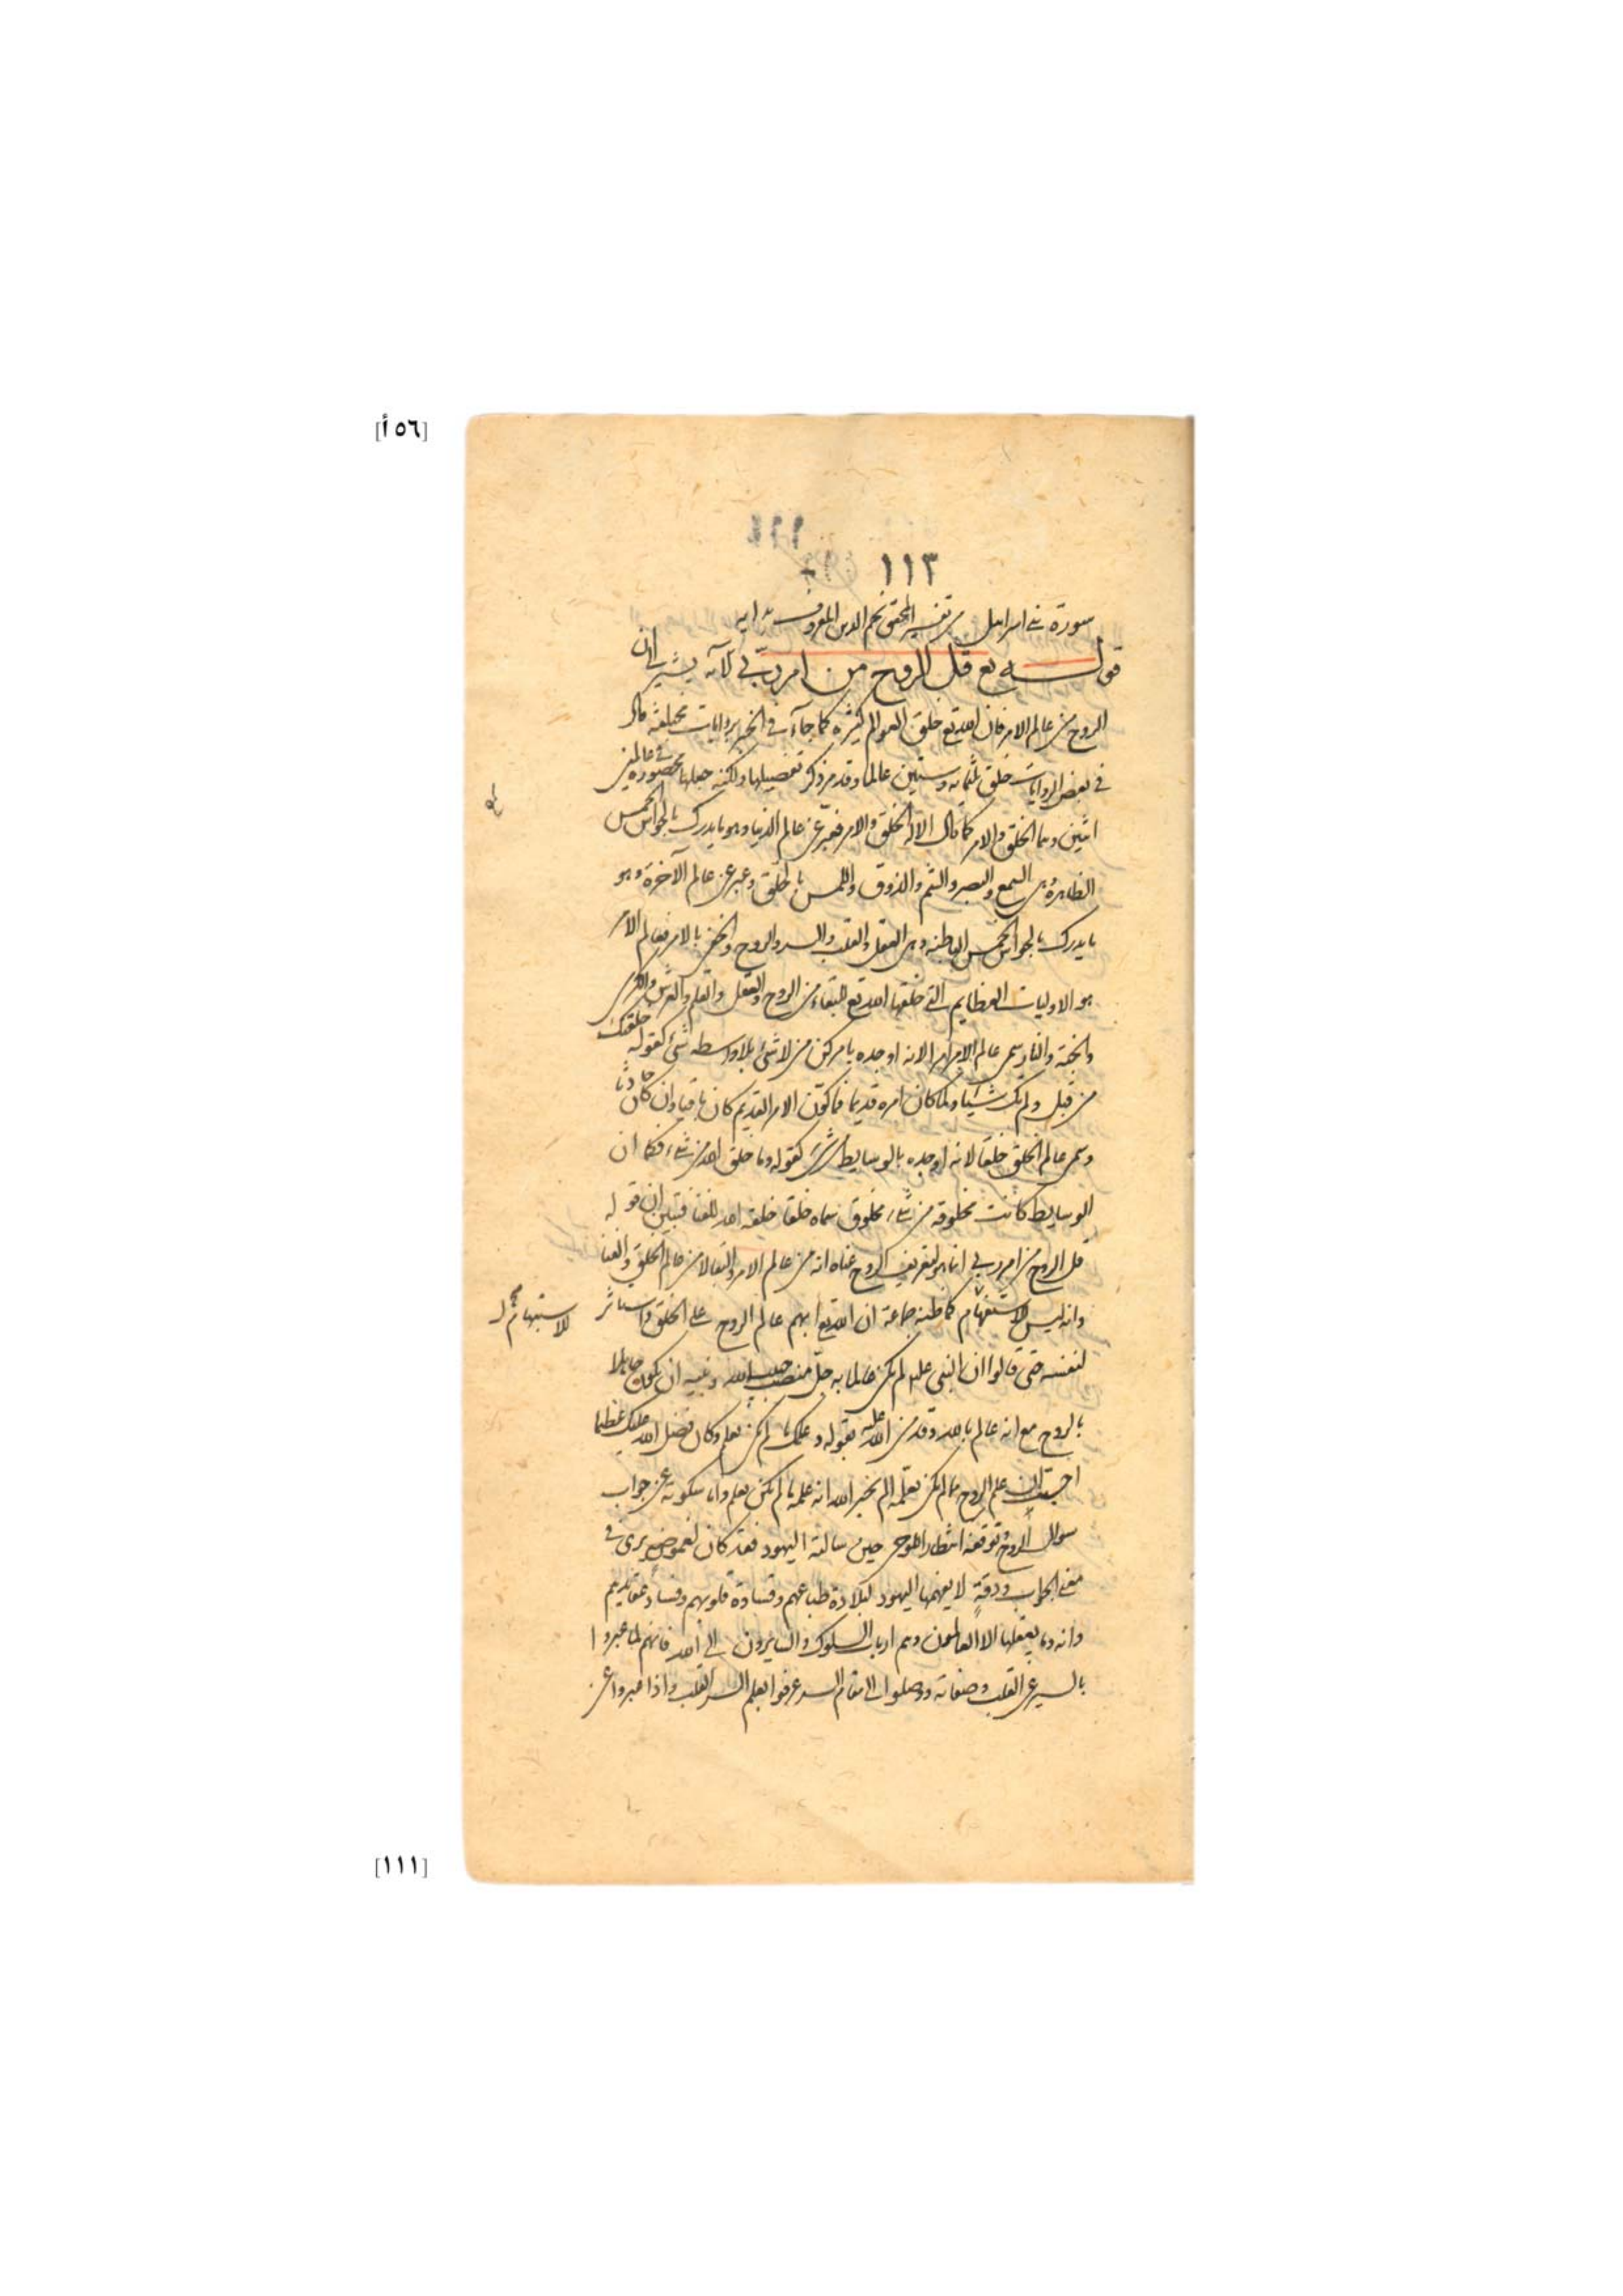 [٥٦أ]
١١١
١١٣
سورة بنى اسرايل من تفسير المحقق نجم الدين المعروف بدايه
قوله تع قل الروح من امر ربى الآيه يشير الى ان
الروح من عالم الامر فان الله تع خلق العوالم كثيرة كما جآء فى الخبر بروايات مختلفه قال
فى بعض الروايات خلق ثلثمائه وستين عالما وقد مر ذكر تفصيلها ولكنه جعلها محصورة فى عالمين
اثنين وهما الخلق والامر كما قال الا له الخلق والامر فعبر عن عالم الدنيا وهو ما يدرك بالحواس الخمس
الظاهرة وهى السمع والبصر والشم والذوق واللمس بالخلق وعبر عن عالم الآخرة وهو
ما يدرك بالحواس الخمس الباطنه وهى العقل والقلب والسر والروح والخفى بالامر فعالم الامر
هو الاوليات العظايم التى خلقها الله تع للبقاء من الروح والعقل والقلم والعرش والكرسى
والجنة والنار سمى عالم الامر امرا لانه اوجده بامر كن من لا شئ بلا واسطه شئ كقوله خلقتك
من قبل ولم تك شيئا ولما كان امره قديما فما كون الامر القديم كان باقيا وان كان حادثا
وسمى عالم الخلق خلقا لانه اوجده بالوسايط من شئ كقوله وما خلق الله من شئ فكما ان
الوسايط كانت مخلوقه من شئ مخلوق سماه خلقا خلقه الله للفنا فتبين ان قوله
قل الروح من امر ربى انما هو لتعريف الروح معناه انه من عالم الامر والبقا لا من عالم الخلق والفنا
وانه ليس للاستفهام كما ظنه جماعة ان الله تع ابهم عالم الروح على الخلق واستاثر
للاستبهام
لنفسه حتى قالوا ان النبى علم لم يكن عالما به جل منصب حبيب الله ونبيه ان يكون جاهلا
بالروح مع انه عالم بالله وقد من الله عليه بقوله وعلمك ما لم تكن تعلم وكان فضل الله عليك عظيما
احسب ان علم الروح مما لم يكن يعلمه الم يخبر الله انه علمه ما لم يكن يعلم واما سكوته عن جواب
سوال الروح وتوقفه انتظارا للوحى حين سالته اليهود فقد كان لغموض يرى فى
معنى الجواب ودقة لا يفهمها اليهود لبلادة طباعهم وقساوة قلوبهم وفساد عقايدهم
وانه وما يعقلها الا العالمون وهم ارباب السلوك والسايرون الى الله فانهم لما عبروا
بالسير عن القلب وصفاته ووصلوا الى مقام السر عرفوا بعلم السر القلب واذا عبروا عن
[١١١]